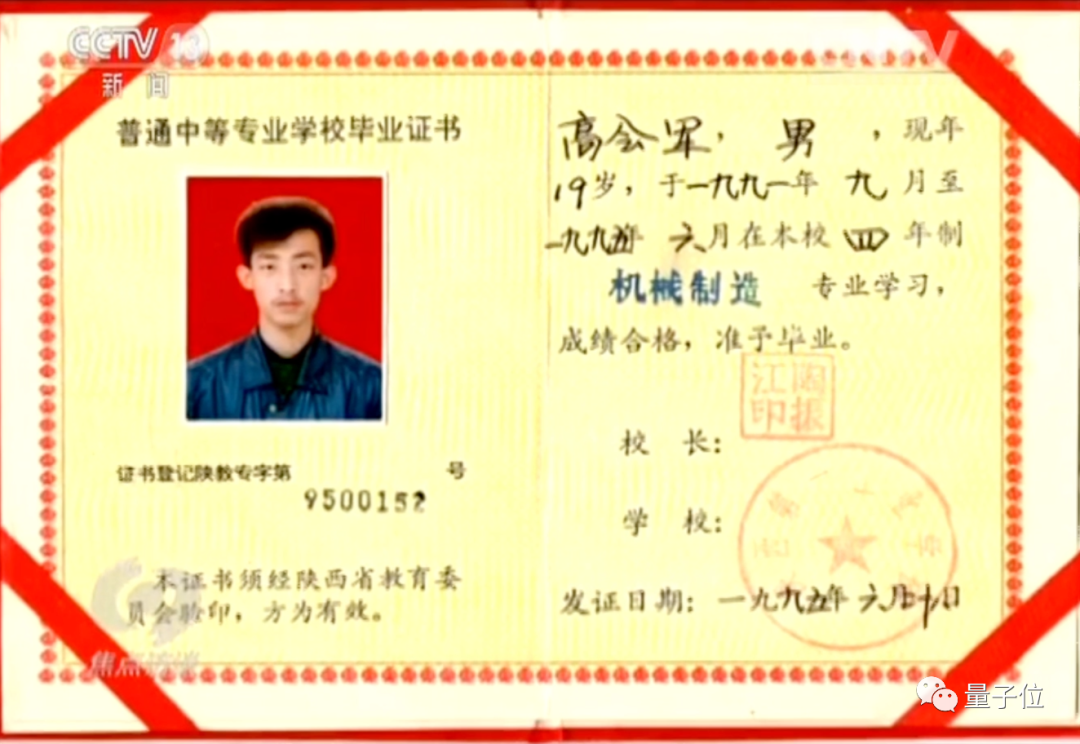 CCTV 13
新闻
普通中等专业学校毕业证书
证书登记陕教专字第 号
9500152
本证书须经陕西省教育委
员会验印，方为有效。
焦点访谈
高会军，男，现年
19岁，于一九九一年九月至
一九九五年六月在本校四年制
机械制造 专业学习，
成绩合格，准予毕业。
校 长：
江 印 振
学 校：
发证日期：一九九五年六月 日
量子位